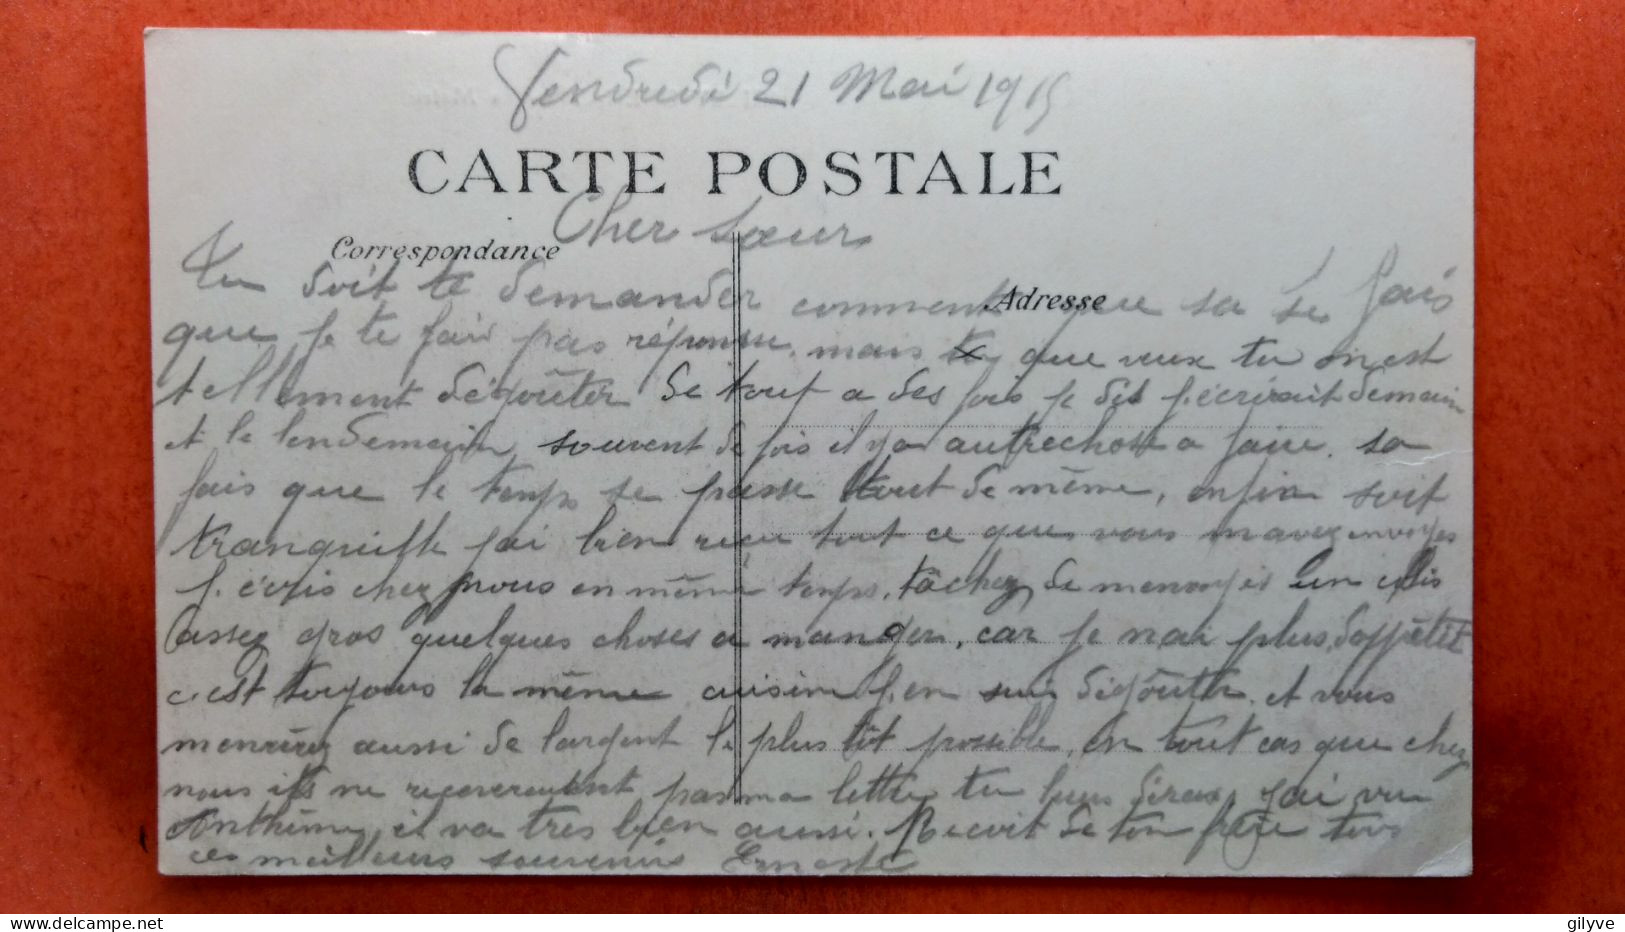 Vendredi 21 Mai 1915
CARTE POSTALE
Cher sœur
Correspondance
Adresse
Tu doit te demander comment que sa se fais
que je te fair pas réponsse, mais que veux tu on est
tellement dégoûter de tout a des fois je dis j.écrirait demain
et le lendemain, souvent de fois il ya autrechose a faire. sa
fais que le temps se passe tout de même, enfin soit
tranquille jai bien reçu tout ce que vous mavez envoyes
j. écris chez nous en même temps. tâchez de menvoyer un colis
assez gros quelques choses a manger, car je nai plus dappétit
c.est toujours la même cuisine j.en suis dégôutte. et vous
menvirez aussi de largent le plus tôt possible, en tout cas que chez
nous ils ne receveraient pas ma lettre tu leurs diras, jai vu
Anthime, il va tres bien aussi. Recoit de ton frère tous
ces meilleurs souvenirs Erneste
gilyve